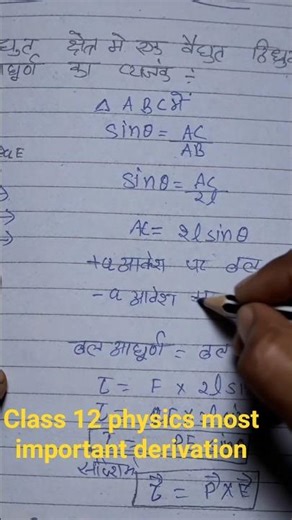 क्षेत्र में एक वैद्युत
का व्यंजक :-
Δ ABC में
sinθ = AC/AB
sinθ = AC/2l
AC = 2l sinθ
+q आवेश पर बल
-q आवेश
बल आघूर्ण = बल
τ = F × 2l
Class 12 physics most
important derivation
सदिश
τ⃗ = P⃗ × E⃗